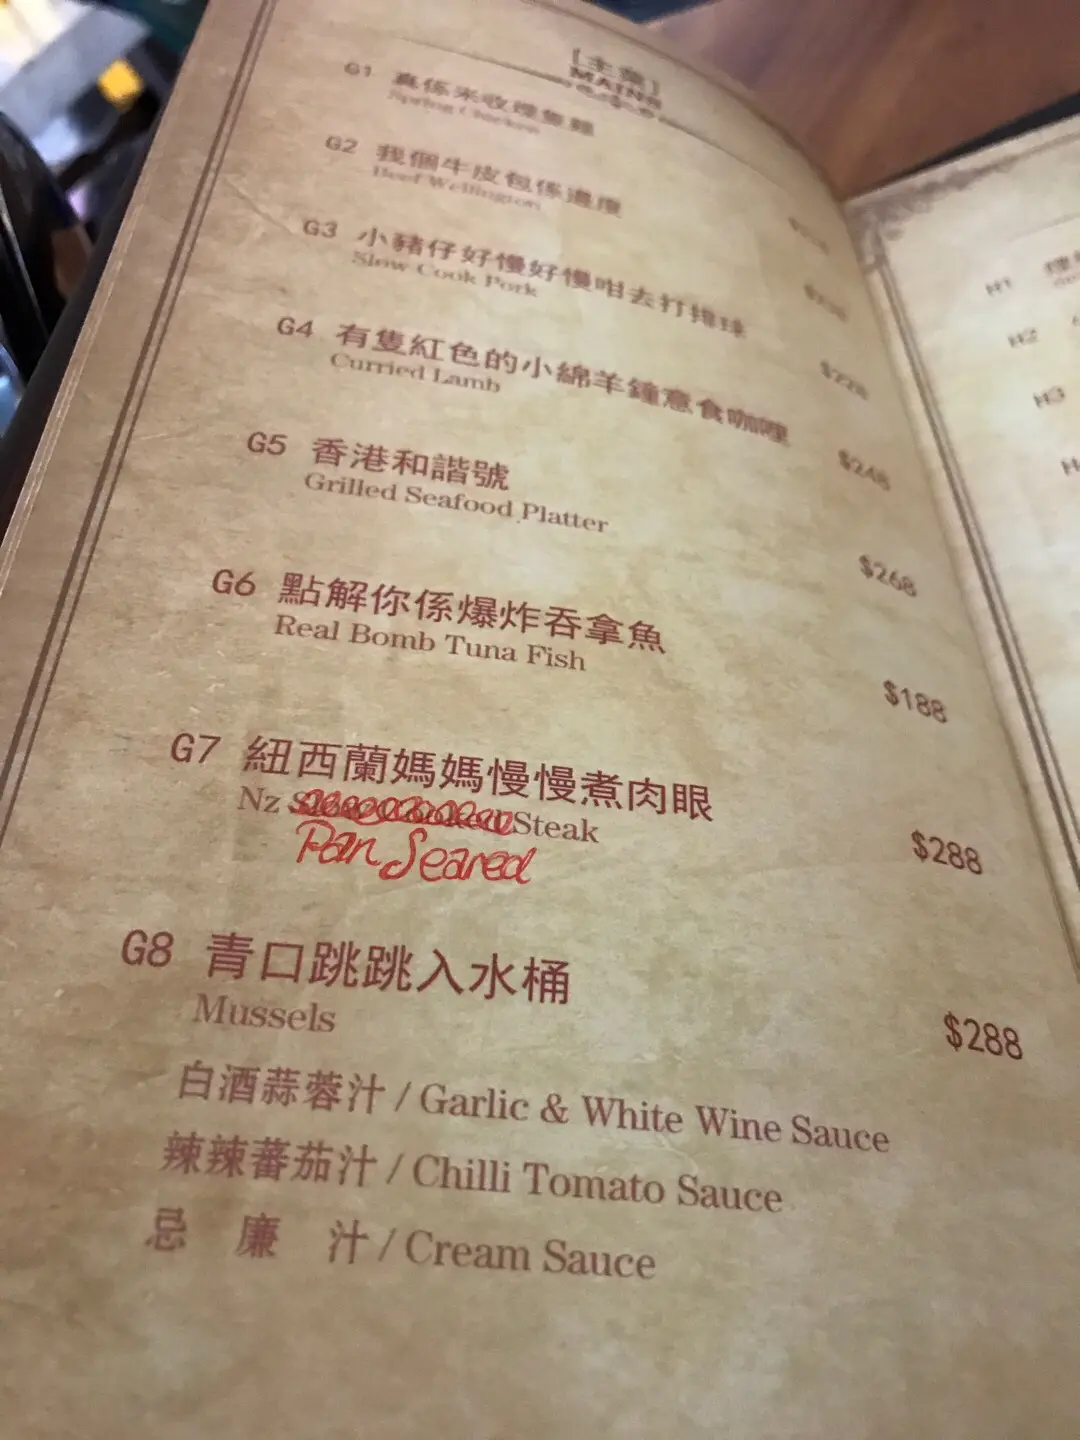 [主菜]
MAINS
G1 真係未收埋隻雞
Spring Chicken
G2 我個牛皮包係濃度
Beef Wellington
G3 小豬仔好慢好慢咁去打排球
Slow Cook Pork
$228
G4 有隻紅色的小綿羊鐘意食咖喱
Curried Lamb
$248
G5 香港和諧號
Grilled Seafood Platter
$268
G6 點解你係爆炸吞拿魚
Real Bomb Tuna Fish
$188
G7 紐西蘭媽媽慢慢煮肉眼
Nz Slow Cooked Steak
Pan Seared
$288
G8 青口跳跳入水桶
Mussels
$288
白酒蒜蓉汁 / Garlic & White Wine Sauce
辣辣蕃茄汁 / Chilli Tomato Sauce
忌廉汁 / Cream Sauce
H1
H2
H3